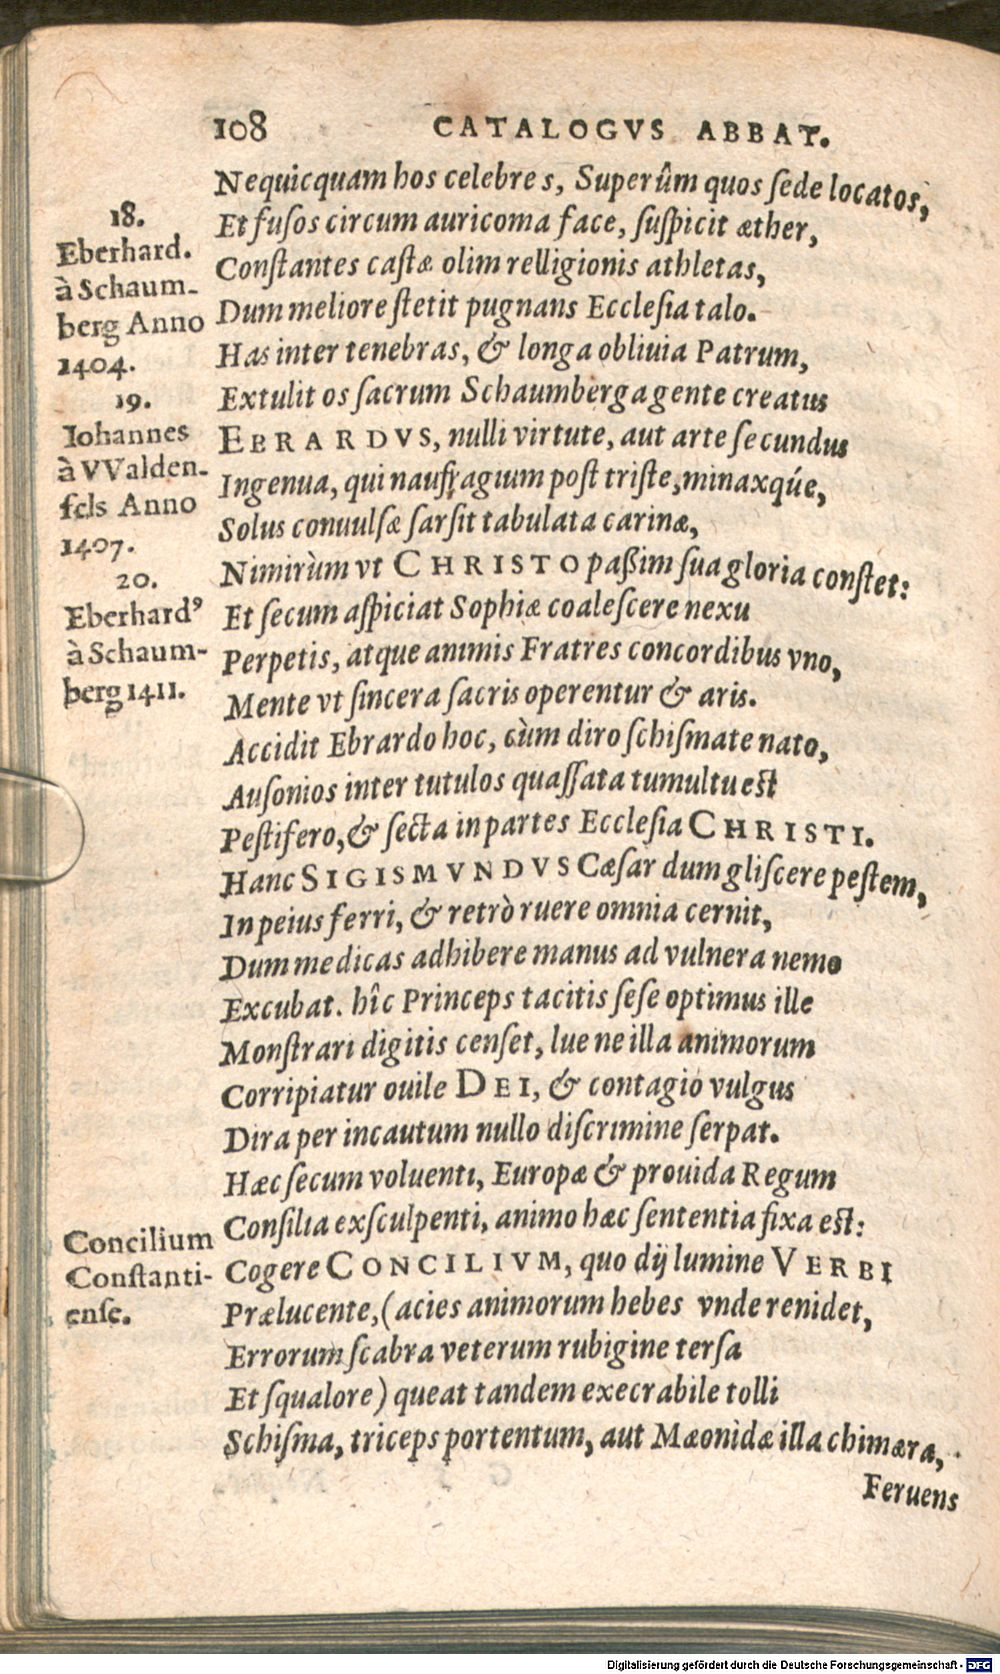 108 CATALOGVS ABBAT.
Nequicquam hos celebres, Superûm quos ſede locatos,
Et fuſos circum auricoma face, ſuſpicit æther,
Conſtantes caſtæ olim relligionis athletas,
Dum meliore ſtetit pugnans Eccleſia talo.
Has inter tenebras, & longa obliuia Patrum,
Extulit os ſacrum Schaumberga gente creatus
EBRARDVS, nulli virtute, aut arte ſecundus
Ingenua, qui naufragium poſt triſte, minaxq́ue,
Solus conuulſæ ſarſit tabulata carinæ,
Nimirùm vt CHRISTO paßim ſua gloria conſtet:
Et ſecum aſpiciat Sophiæ coaleſcere nexu
Perpetis, atque animis Fratres concordibus vno,
Mente vt ſincera ſacris operentur & aris.
Accidit Ebrardo hoc, cùm diro ſchiſmate nato,
Auſonios inter tutulos quaſſata tumultu eſt
Peſtifero, & ſecta in partes Eccleſia CHRISTI.
Hanc SIGISMVNDVS Cæſar dum gliſcere peſtem,
In peius ferri, & retrò ruere omnia cernit,
Dum medicas adhibere manus ad vulnera nemo
Excubat. hîc Princeps tacitis ſeſe optimus ille
Monſtrari digitis cenſet, lue ne illa animorum
Corripiatur ouile DEI, & contagio vulgus
Dira per incautum nullo diſcrimine ſerpat.
Hæc ſecum voluenti, Europæ & prouida Regum
Conſilia exſculpenti, animo hæc ſententia fixa eſt:
Cogere CONCILIVM, quo dij lumine VERBI
Prælucente, (acies animorum hebes vnde renidet,
Errorum ſcabra veterum rubigine terſa
Et ſqualore) queat tandem execrabile tolli
Schiſma, triceps portentum, aut Mæonidæ illa chimæra,
Feruens
18.
Eberhard.
à Schaum-
berg Anno
1404.
19.
Iohannes
à VValden-
fels Anno
1407.
20.
Eberhardꝰ
à Schaum-
berg 1411.
Concilium
Conſtanti-
enſe.
Digitalisierung gefördert durch die Deutsche Forschungsgemeinschaft - DFG